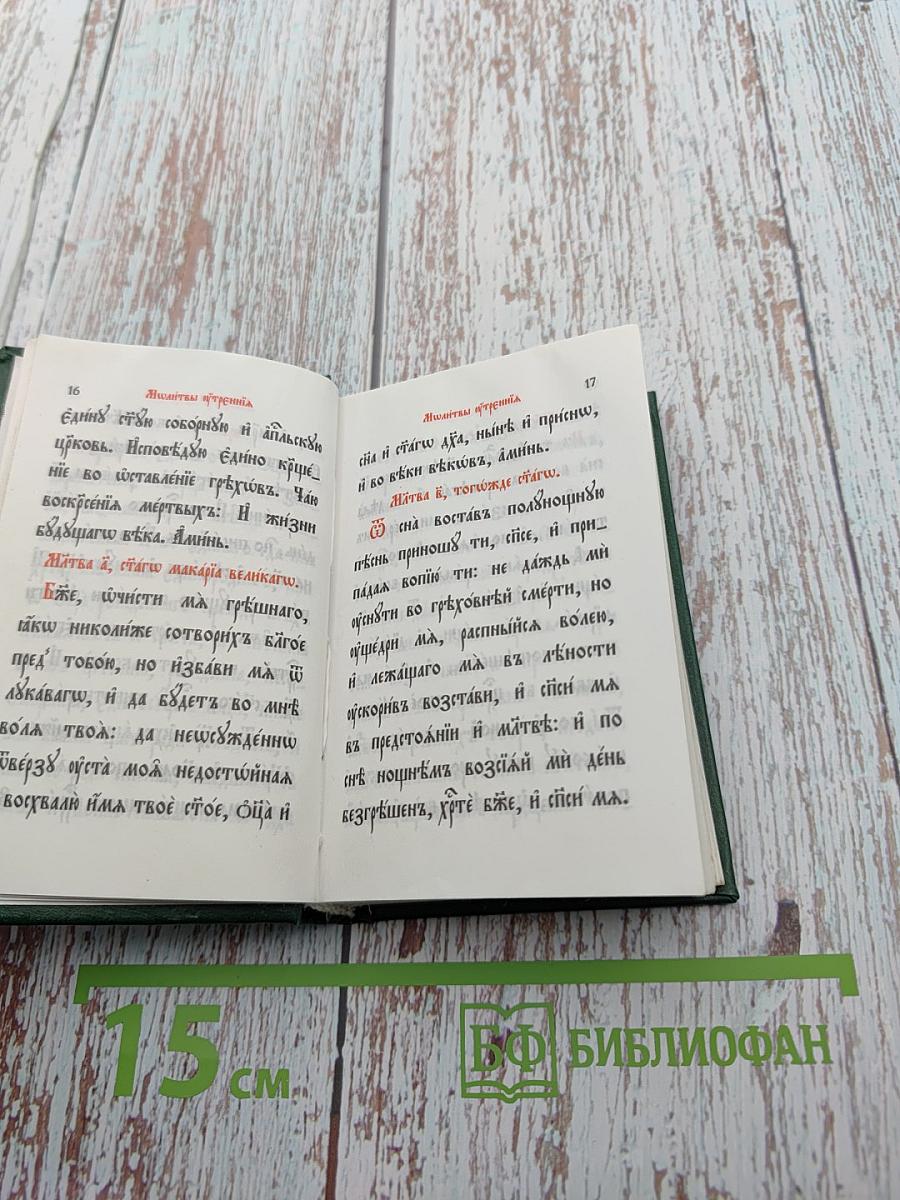 16
Мѡли́твы ᲂу҆́тренნїѧ
є҆ди́нꙋ ст҃ꙋ́ю собо́рнꙋю и҆ а҆пⷭ҇льскꙋю
цр҃ковь. И҆сповѣ́дꙋю є҆ди́но кр҃ще́_
нїе во ѡ҆ставле́нїе грѣхѡ́въ. Ча́ю
воскрⷭ҇е́нїѧ ме́ртвыхъ: И҆ жи́зни
бꙋ́дꙋщагѡ вѣ́ка. А҆ми́нь.
Мл҃тва а҃, ст҃а́гѡ мака́рїа вели́кагѡ.
Бж҃е, ѡ҆чи́сти мѧ̀ грѣ́шнаго,
ꙗ҆́кѡ николи́же сотвори́хъ бл҃го́е
пред̾ тобо́ю, но и҆зба́ви мѧ̀ ѿ
лꙋка́вагѡ, и҆ да бꙋ́детъ во мнѣ̀
во́лѧ твоѧ̀: да неѡсꙋжде́ннѡ
ѿве́рзꙋ ᲂу҆ста̀ моѧ̑ недостѡ́йнаѧ
восхвалю̀ и҆́мѧ твоѐ ст҃о́е, ѻ҆ц҃а̀ и҆
17
Мѡли́твы ᲂу҆́треннїѧ
сн҃а и҆ ст҃а́гѡ дх҃а, ны́нѣ и҆ при́снѡ,
и҆ во вѣ́ки вѣкѡ́въ, а҆ми́нь.
Мл҃тва в҃, тогѡ́жде ст҃а́гѡ.
Ѿ сна̀ воста́въ полꙋно́щнꙋю
пѣ́снь приношꙋ́ ти, сп҃се, и҆ при_
па́даѧ вопїю́ ти: не да́ждь мѝ
ᲂу҆снꙋ́ти во грѣхо́внѣй сме́рти, но
ᲂу҆ще́дри мѧ̀, распны́йсѧ во́лею,
и҆ лежа́щаго мѧ̀ въ лѣ́ности
ᲂу҆скори́въ возста́ви, и҆ сп҃си́ мѧ
въ предстоѧ́нїи и҆ мл҃твѣ: и҆ по
снѣ̀ нощнѣ́мъ возсїѧ́й мѝ де́нь
безгрѣ́шенъ, хрⷭ҇тѐ бж҃е, и҆ сп҃си́ мѧ.
15 см
БФ БИБЛИОФАН